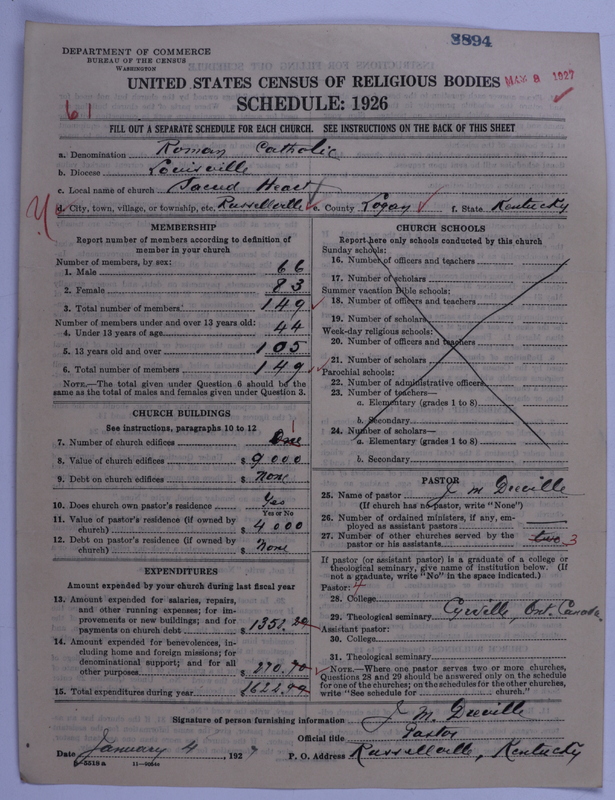 3894
DEPARTMENT OF COMMERCE
BUREAU OF THE CENSUS
WASHINGTON
UNITED STATES CENSUS OF RELIGIOUS BODIES
MAR 8 1927
SCHEDULE: 1926
61
FILL OUT A SEPARATE SCHEDULE FOR EACH CHURCH. SEE INSTRUCTIONS ON THE BACK OF THIS SHEET
a. Denomination Roman Catholic
b. Diocese Louisville
c. Local name of church Sacred Heart
d. City, town, village, or township, etc. Russellville e. County Logan f. State Kentucky
MEMBERSHIP
Report number of members according to definition of
member in your church
Number of members, by sex:
1. Male 66
2. Female 83
3. Total number of members 149
Number of members under and over 13 years old:
4. Under 13 years of age 44
5. 13 years old and over 105
6. Total number of members 149
NOTE.—The total given under Question 6 should be the
same as the total of males and females given under Question 3.
CHURCH BUILDINGS
See instructions, paragraphs 10 to 12
7. Number of church edifices One 1
8. Value of church edifices $ 9000
9. Debt on church edifices $ none
10. Does church own pastor's residence Yes
Yes or No
11. Value of pastor's residence (if owned by
church) $ 4000
12. Debt on pastor's residence (if owned by
church) $ none
EXPENDITURES
Amount expended by your church during last fiscal year
13. Amount expended for salaries, repairs,
and other running expenses; for im-
provements or new buildings; and for
payments on church debt $ 1351.
14. Amount expended for benevolences, in-
cluding home and foreign missions; for
denominational support; and for all
other purposes $ 270.70
15. Total expenditures during year $ 1622.
CHURCH SCHOOLS
Report here only schools conducted by this church
Sunday schools:
16. Number of officers and teachers
17. Number of scholars
Summer vacation Bible schools:
18. Number of officers and teachers
19. Number of scholars
Week-day religious schools:
20. Number of officers and teachers
21. Number of scholars
Parochial schools:
22. Number of administrative officers
23. Number of teachers—
a. Elementary (grades 1 to 8)
b. Secondary
24. Number of scholars—
a. Elementary (grades 1 to 8)
b. Secondary
PASTOR
25. Name of pastor J M
(If church has no pastor, write "None")
26. Number of ordained ministers, if any, em-
ployed as assistant pastors
27. Number of other churches served by the
pastor or his assistants two 3
If pastor (or assistant pastor) is a graduate of a college or
theological seminary, give name of institution below. (If
not a graduate, write "No" in the space indicated.)
Pastor: 4
28. College
29. Theological seminary Cyrville, Ont. Canada
Assistant pastor:
30. College
31. Theological seminary
NOTE.—Where one pastor serves two or more churches,
Questions 28 and 29 should be answered only on the schedule
for one of the churches; on the schedules for the other churches,
write "See schedule for church."
Signature of person furnishing information J M.
Official title Pastor
Date January 4, 1927 P. O. Address Russellville, Kentucky
11—9064a